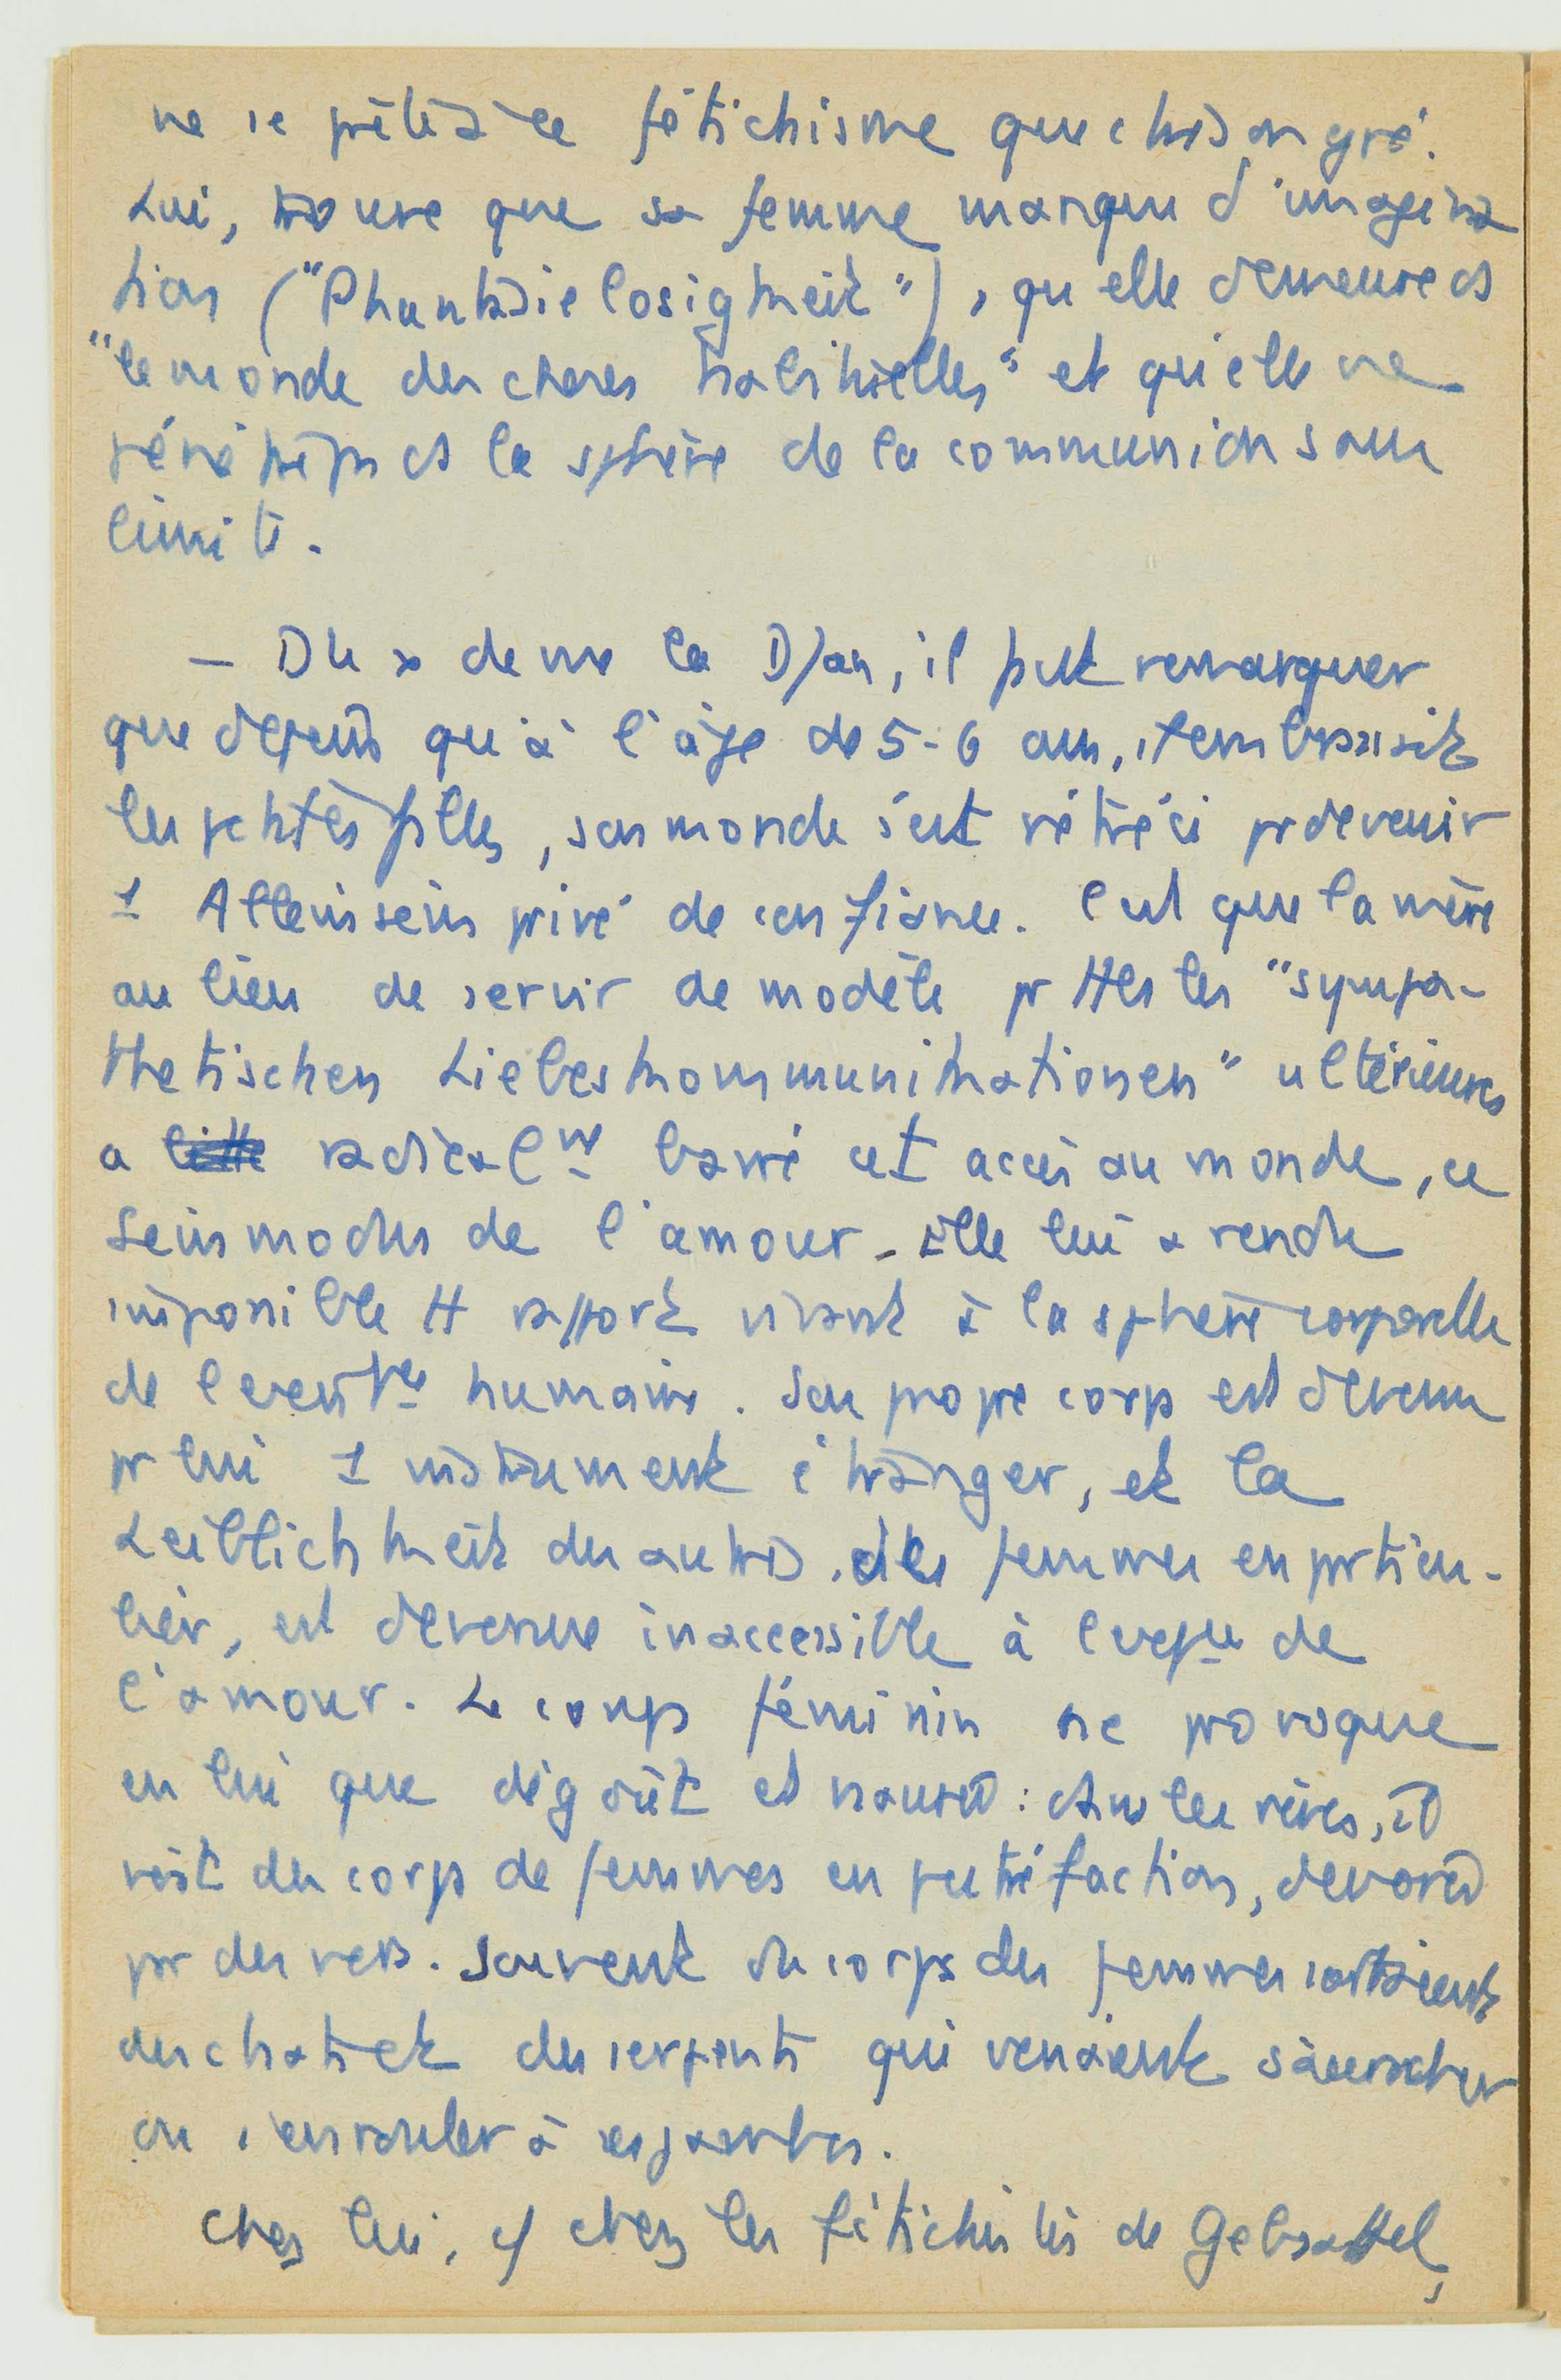 ne se prête à ce fétichisme que contre son gré.
Lui, trouve que sa femme manque d'imagina
tion ("Phantasielosigkeit"), qu'elle demeure ds
"le monde des choses habituelles" et qu'elle ne
pénètre pas ds la sphère de la communion sans
limite.
— Du x de me la D/an, il peut remarquer
que depuis qu'à l'âge de 5-6 ans, il embrassait
les petites filles, son monde s'est rétréci pr devenir
1 Alleinsein privé de confiance. C'est que la mère
au lieu de servir de modèle pr ttes les "sympa-
thetischen Liebeskommunikationen" ultérieures
a radicalmt barré cet accès au monde, ce
Seinsmodus de l'amour. Elle lui a rendu
impossible tt rapport vivant à la sphère corporelle
de l'existce humaine. Son propre corps est devenu
pr lui 1 instrument étranger, et la
Leiblichkeit des autres, des femmes en particu-
lier, est devenue inaccessible à de
l'amour. Le corps féminin ne provoque
en lui que dégoût et nausée : ds les rêves, il
voit des corps de femmes en putréfaction, dévorés
par des vers. Souvent du corps des femmes sortaient
des chats et des serpents qui venaient s'accrocher
ou s'enrouler à ses jambes.
Chez lui, c/ chez les fétichistes de Gebsattel,